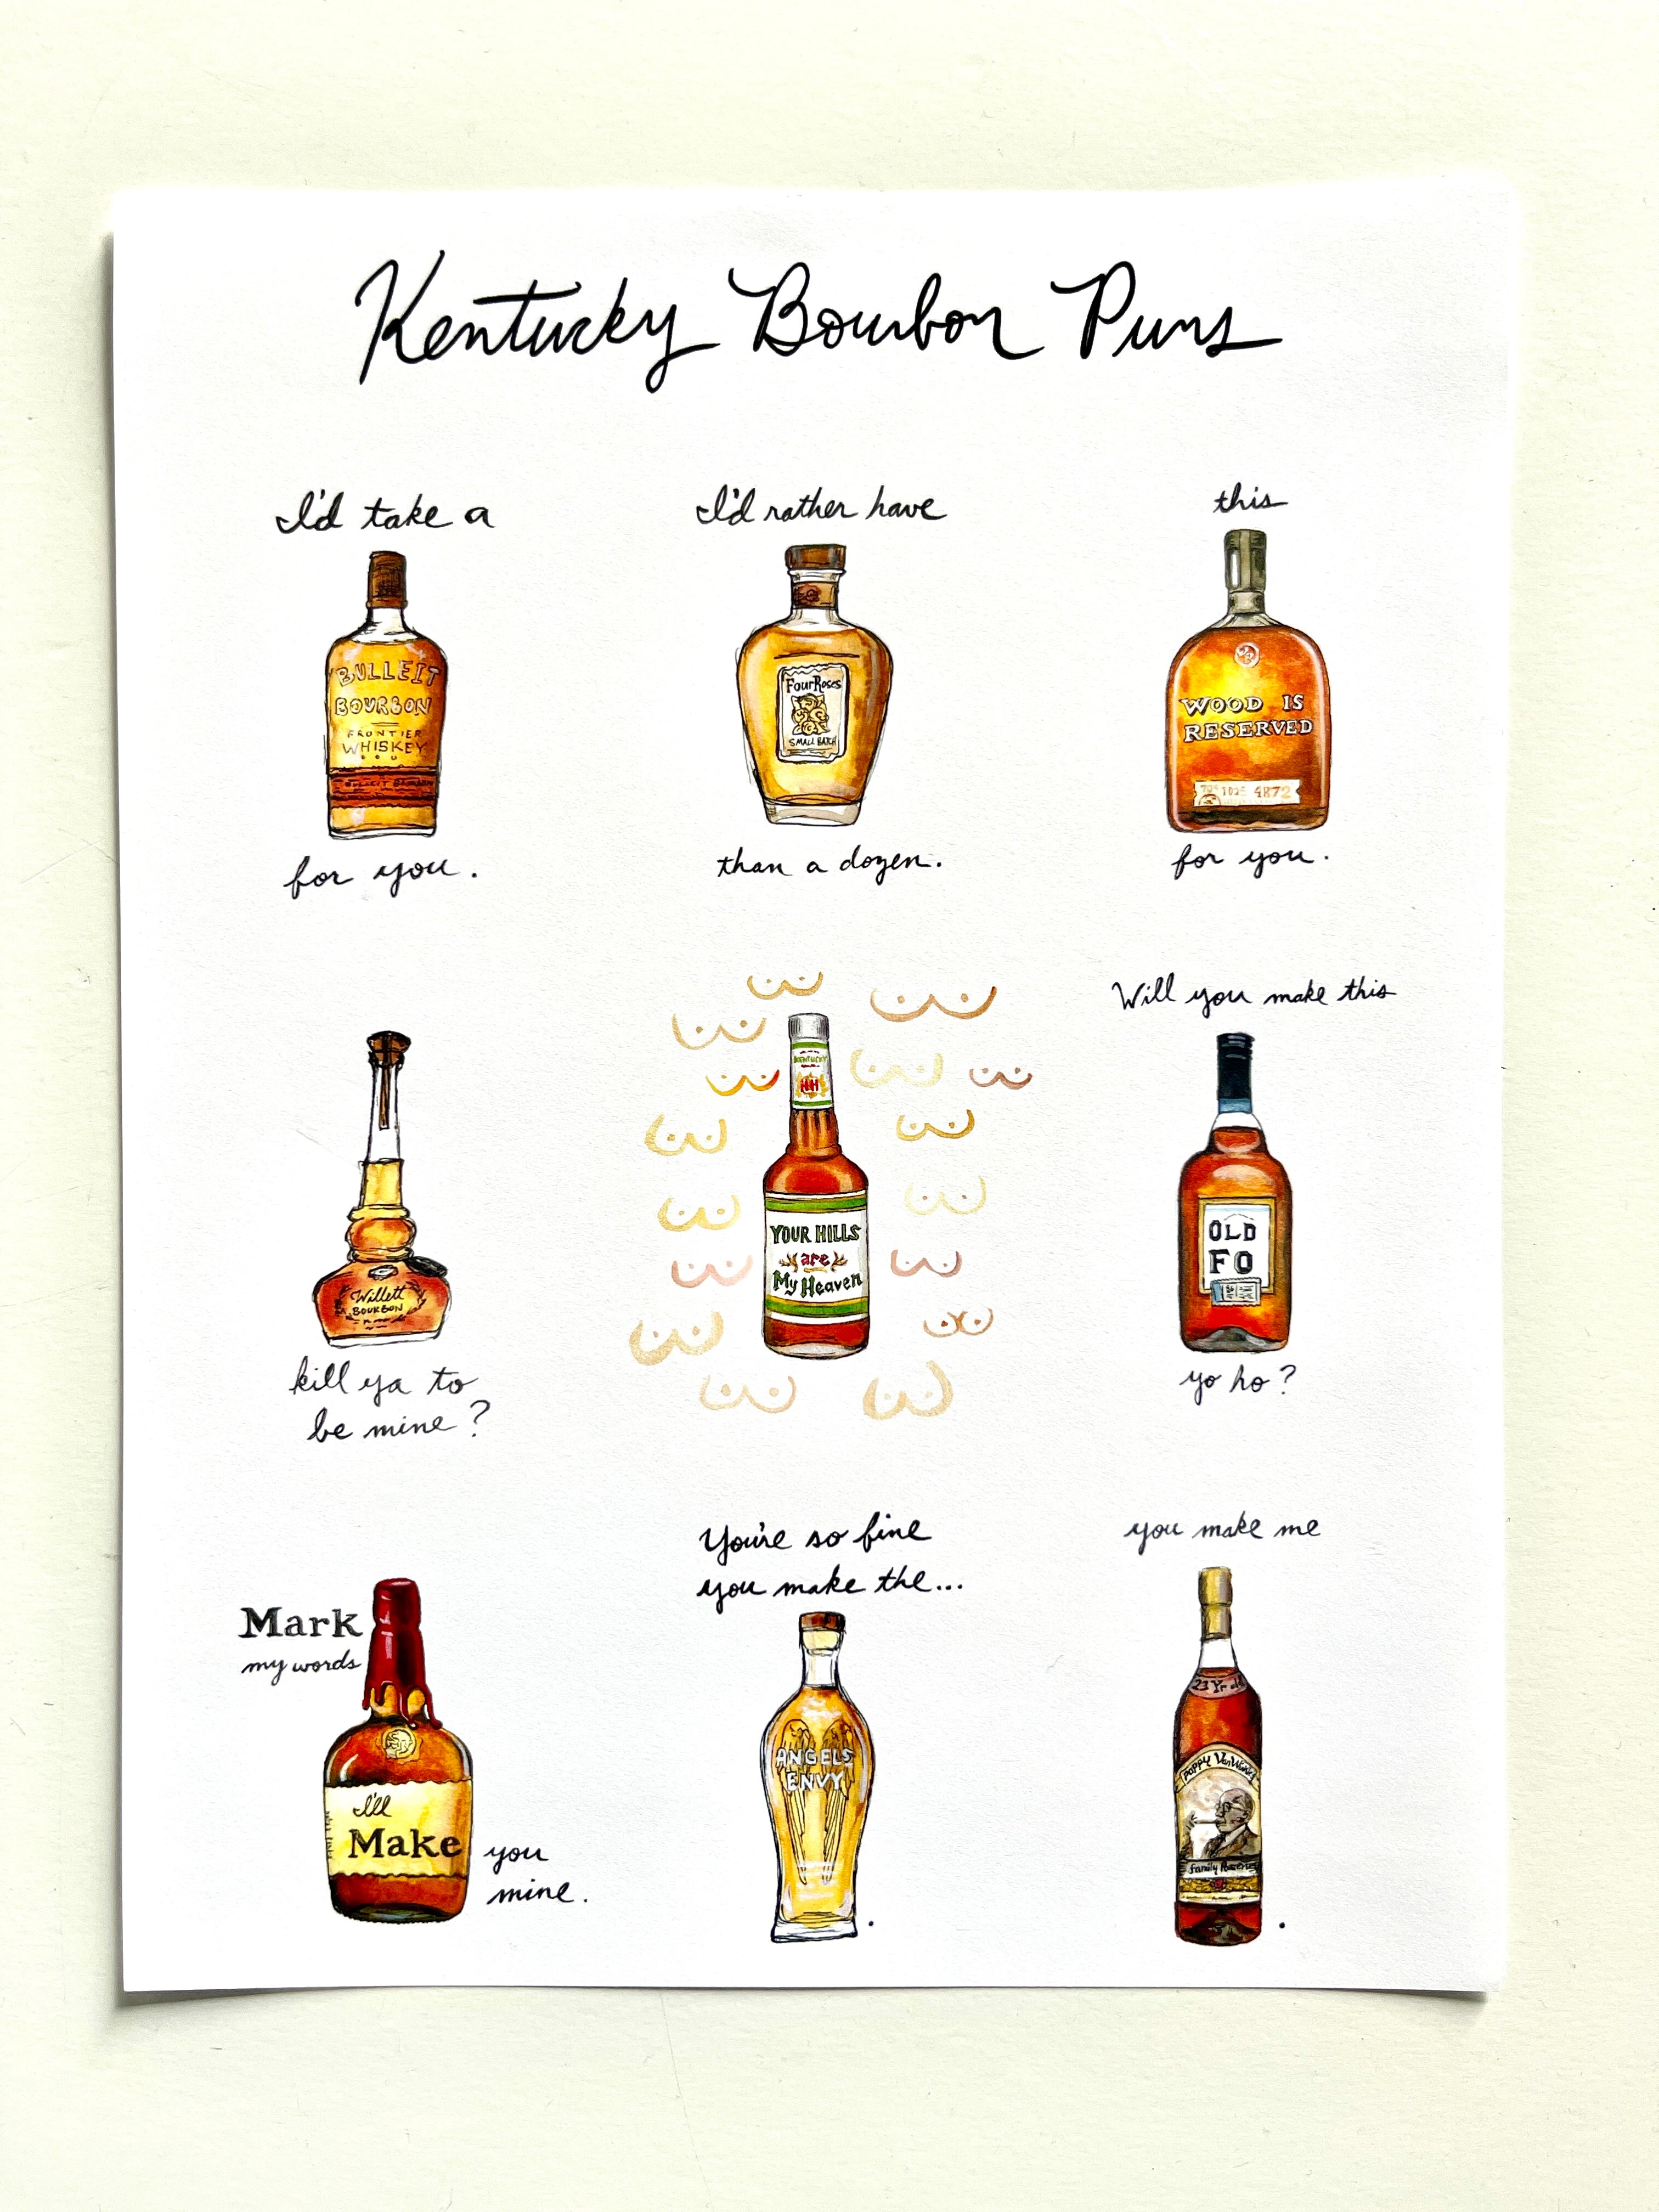 Kentucky Bourbon Puns
I'd take a
BULLEIT
BOURBON
FRONTIER
WHISKEY
for you.
I'd rather have
Four Roses
SMALL BATCH
than a dozen.
this
WOOD IS
RESERVED
4872
for you.
Willett
BOURBON
kill ya to
be mine?
KENTUCKY
HH
YOUR HILLS
are
My Heaven
Will you make this
OLD
FO
yo ho?
Mark
my words
I'll
Make
you
mine.
You're so fine
you make the...
ANGELS
ENVY
.
you make me
23 Yr old
Pappy Van Winkle
Family Reserve
.